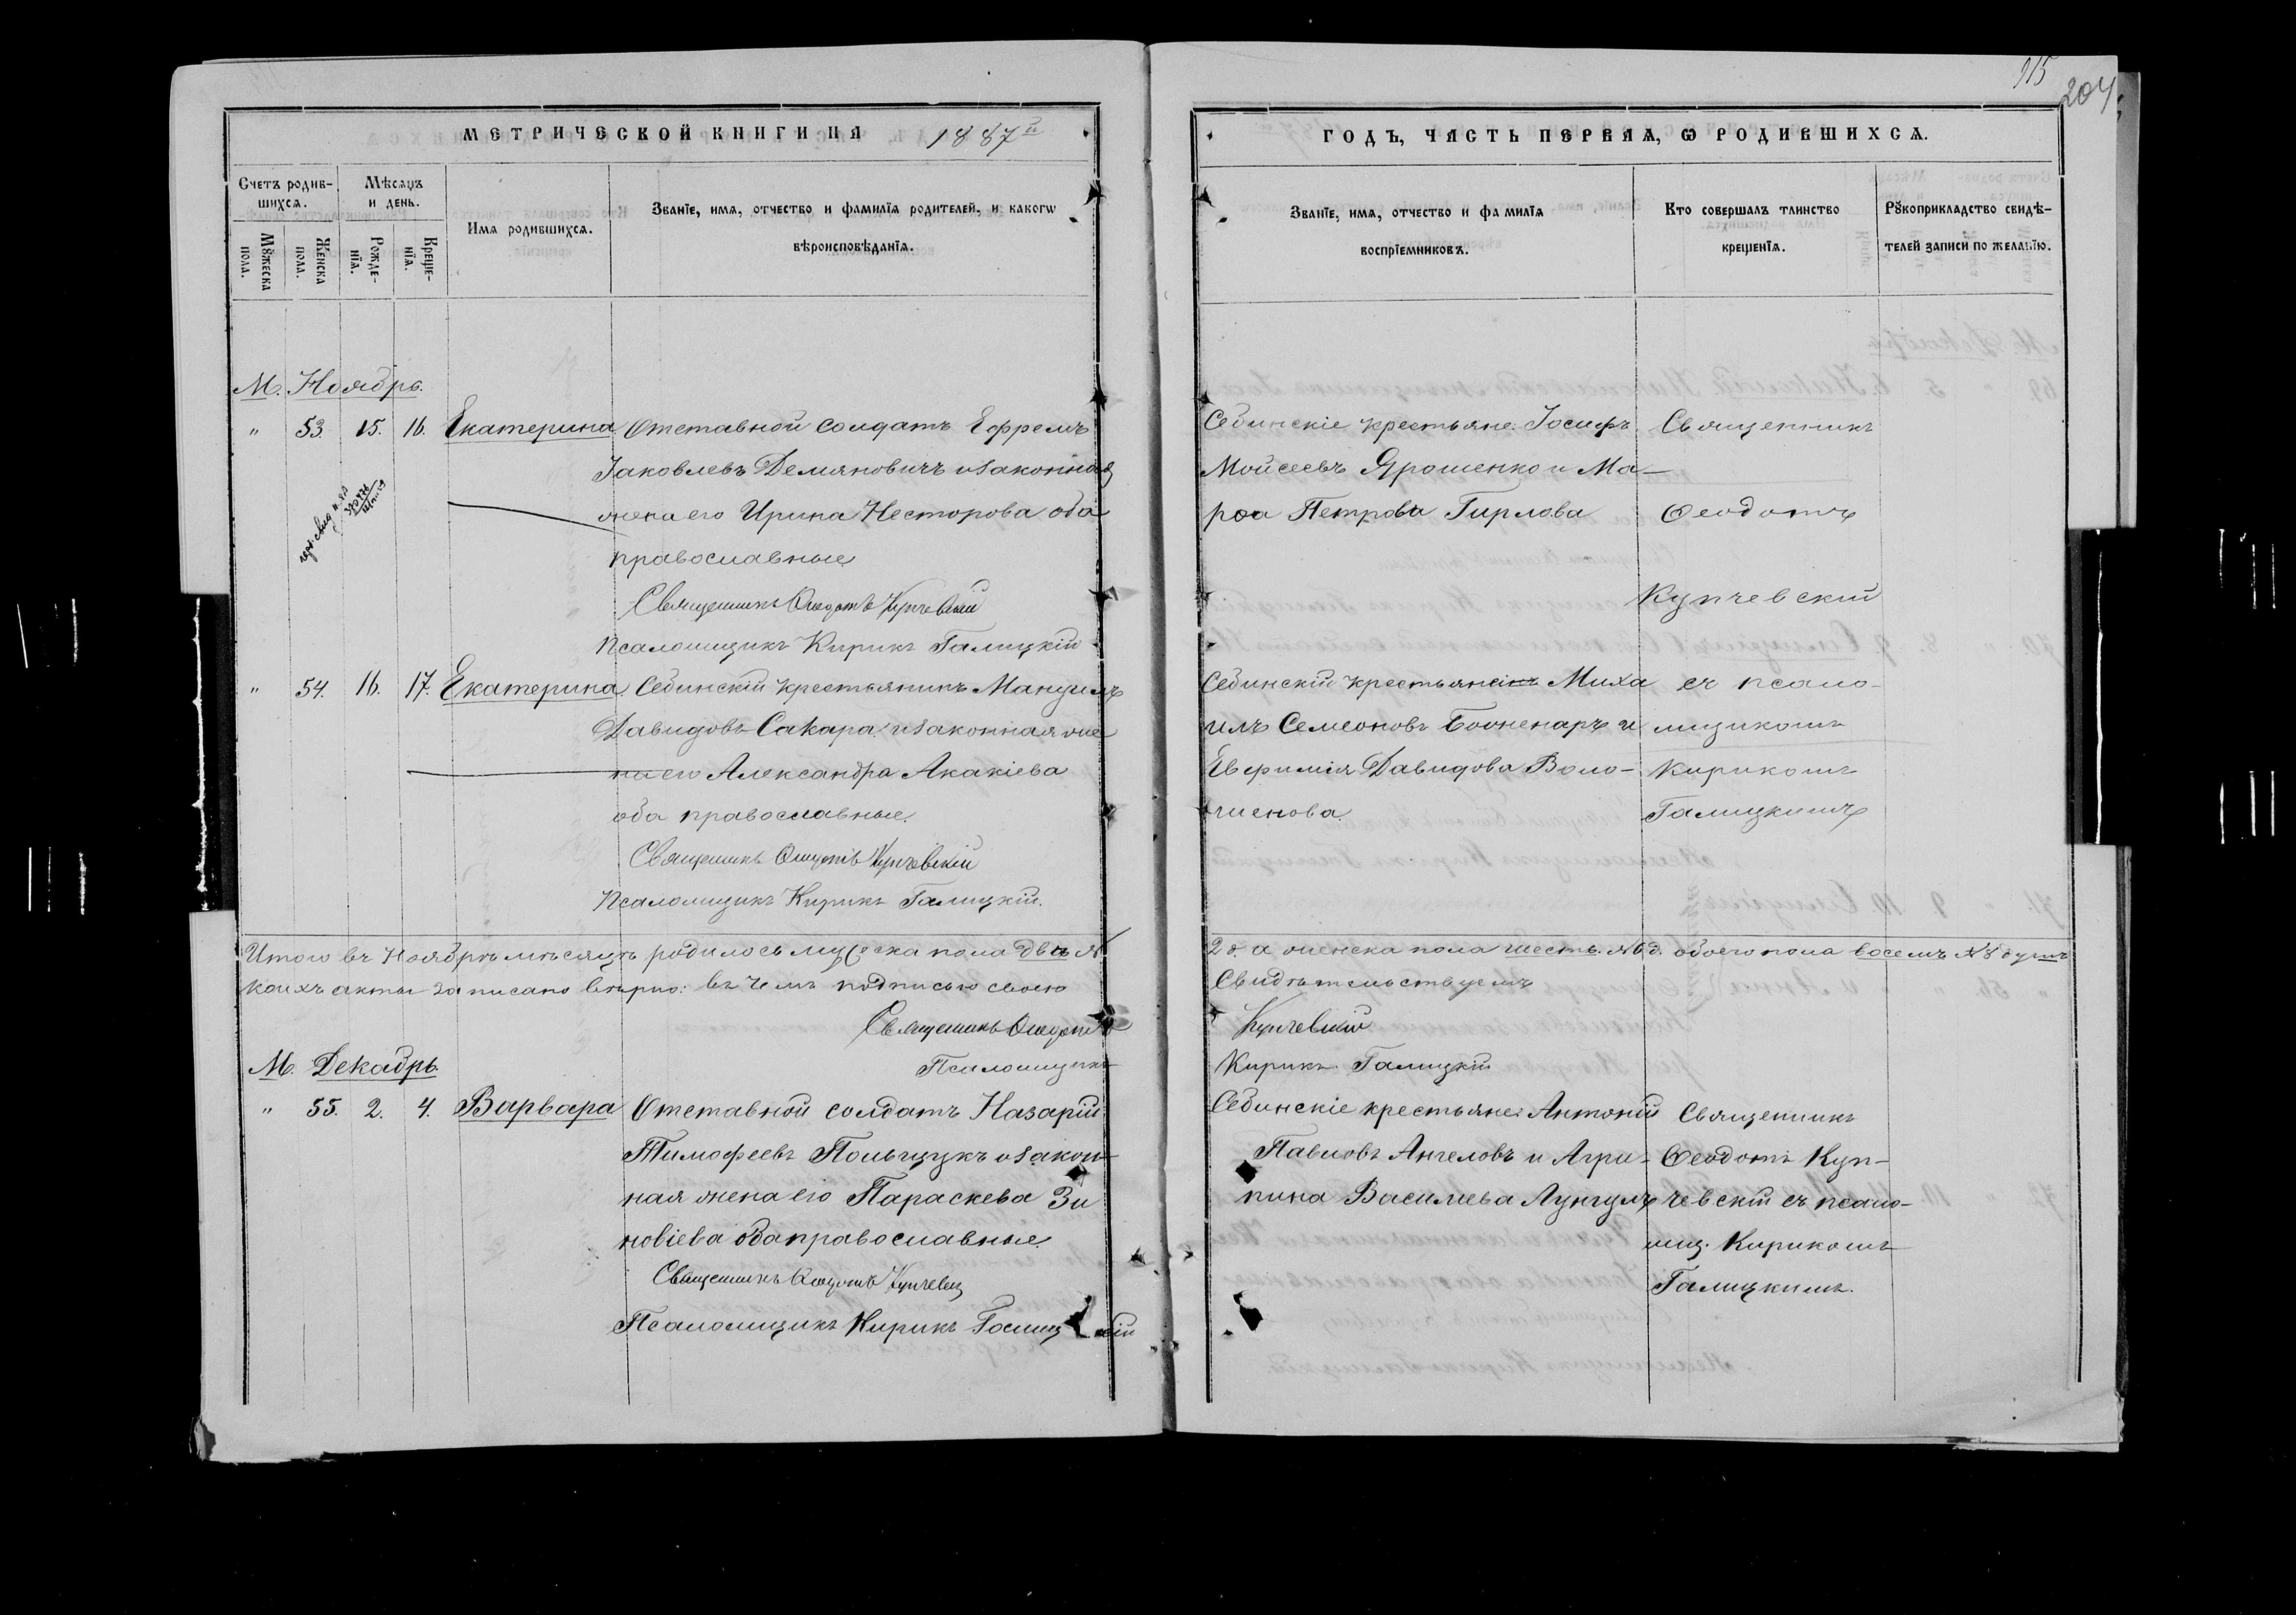 915
204
МЕТРИЧЕСКОЙ КНИГИ НА 1887й
ГОДЪ, ЧАСТЬ ПЕРВАЯ, Ѡ РОДИВШИХСѦ.
Счетъ родив-
шихсѧ.
Мѣсѧцъ
и день.
Мꙋжеска
пола.
Женска
пола.
Рожде-
нїѧ.
Креще-
нїѧ.
Имѧ родившихсѧ.
Званїе, имѧ, отчество и фамилїѧ родителей, и какогѡ
вѣроисповѣданїѧ.
Званїе, имѧ, отчество и фамилїѧ
воспрїемниковъ.
Кто совершалъ таинство
крещенїѧ.
Рꙋкоприкладство свидѣ-
телей записи по желанїю.
М. Ноябрь.
" 53. 15. 16. Екатерина Отставной солдатъ Ефремъ
Іаковлевъ Демяновичъ и законная
жена его Ирина Несторова оба
православные
Священникъ Ѳеодотъ Купчевскій
Псаломщикъ Кирикъ Галицкій
Себинскіе крестьяне: Іосифъ
Мойсеевъ Ярошенко и Ма-
рѳа Петрова Гирлова
Священникъ
Ѳеодотъ
Купчевскій
" 54. 16. 17. Екатерина Себинскій крестьянинъ Мануилъ
Давидовъ Сакара и законная же
на его Александра Акакіева
оба православные.
Священникъ Ѳеодотъ Купчевскій
Псаломщикъ Кирикъ Галицкій.
Себинскій крестьянинъ Миха
илъ Семеоновъ Бооженаръ и
Евфимія Давидова Воло-
шенова
съ псало-
мщикомъ
Кирикомъ
Галицкимъ
Итого въ Ноябрѣ мѣсяцѣ родилось мужеска пола два №
2 д. а женска пола шесть. №6 д. обоего пола восемъ №8 душъ
коихъ акты записано вѣрно: въ чемъ подписью своею
Свидѣтельствуемъ
Священникъ Ѳеодотъ
Купчевскій
Псаломщикъ
Кирикъ Галицкій
М. Декабрь.
" 55. 2. 4. Варвара Отставной солдатъ Назарій
Тимофеевъ Польщукъ и закон-
ная жена его Параскева Зи
новіева оба православные.
Священникъ Ѳеодотъ Купчевск
Псаломщикъ Кирикъ Галицкій
Себинскіе крестьяне: Антоній
Павловъ Ангеловъ и Агри-
пина Василиева Лунгулъ
Священникъ
Ѳеодотъ Куп-
чевскій съ псало-
мщ. Кирикомъ
Галицкимъ.